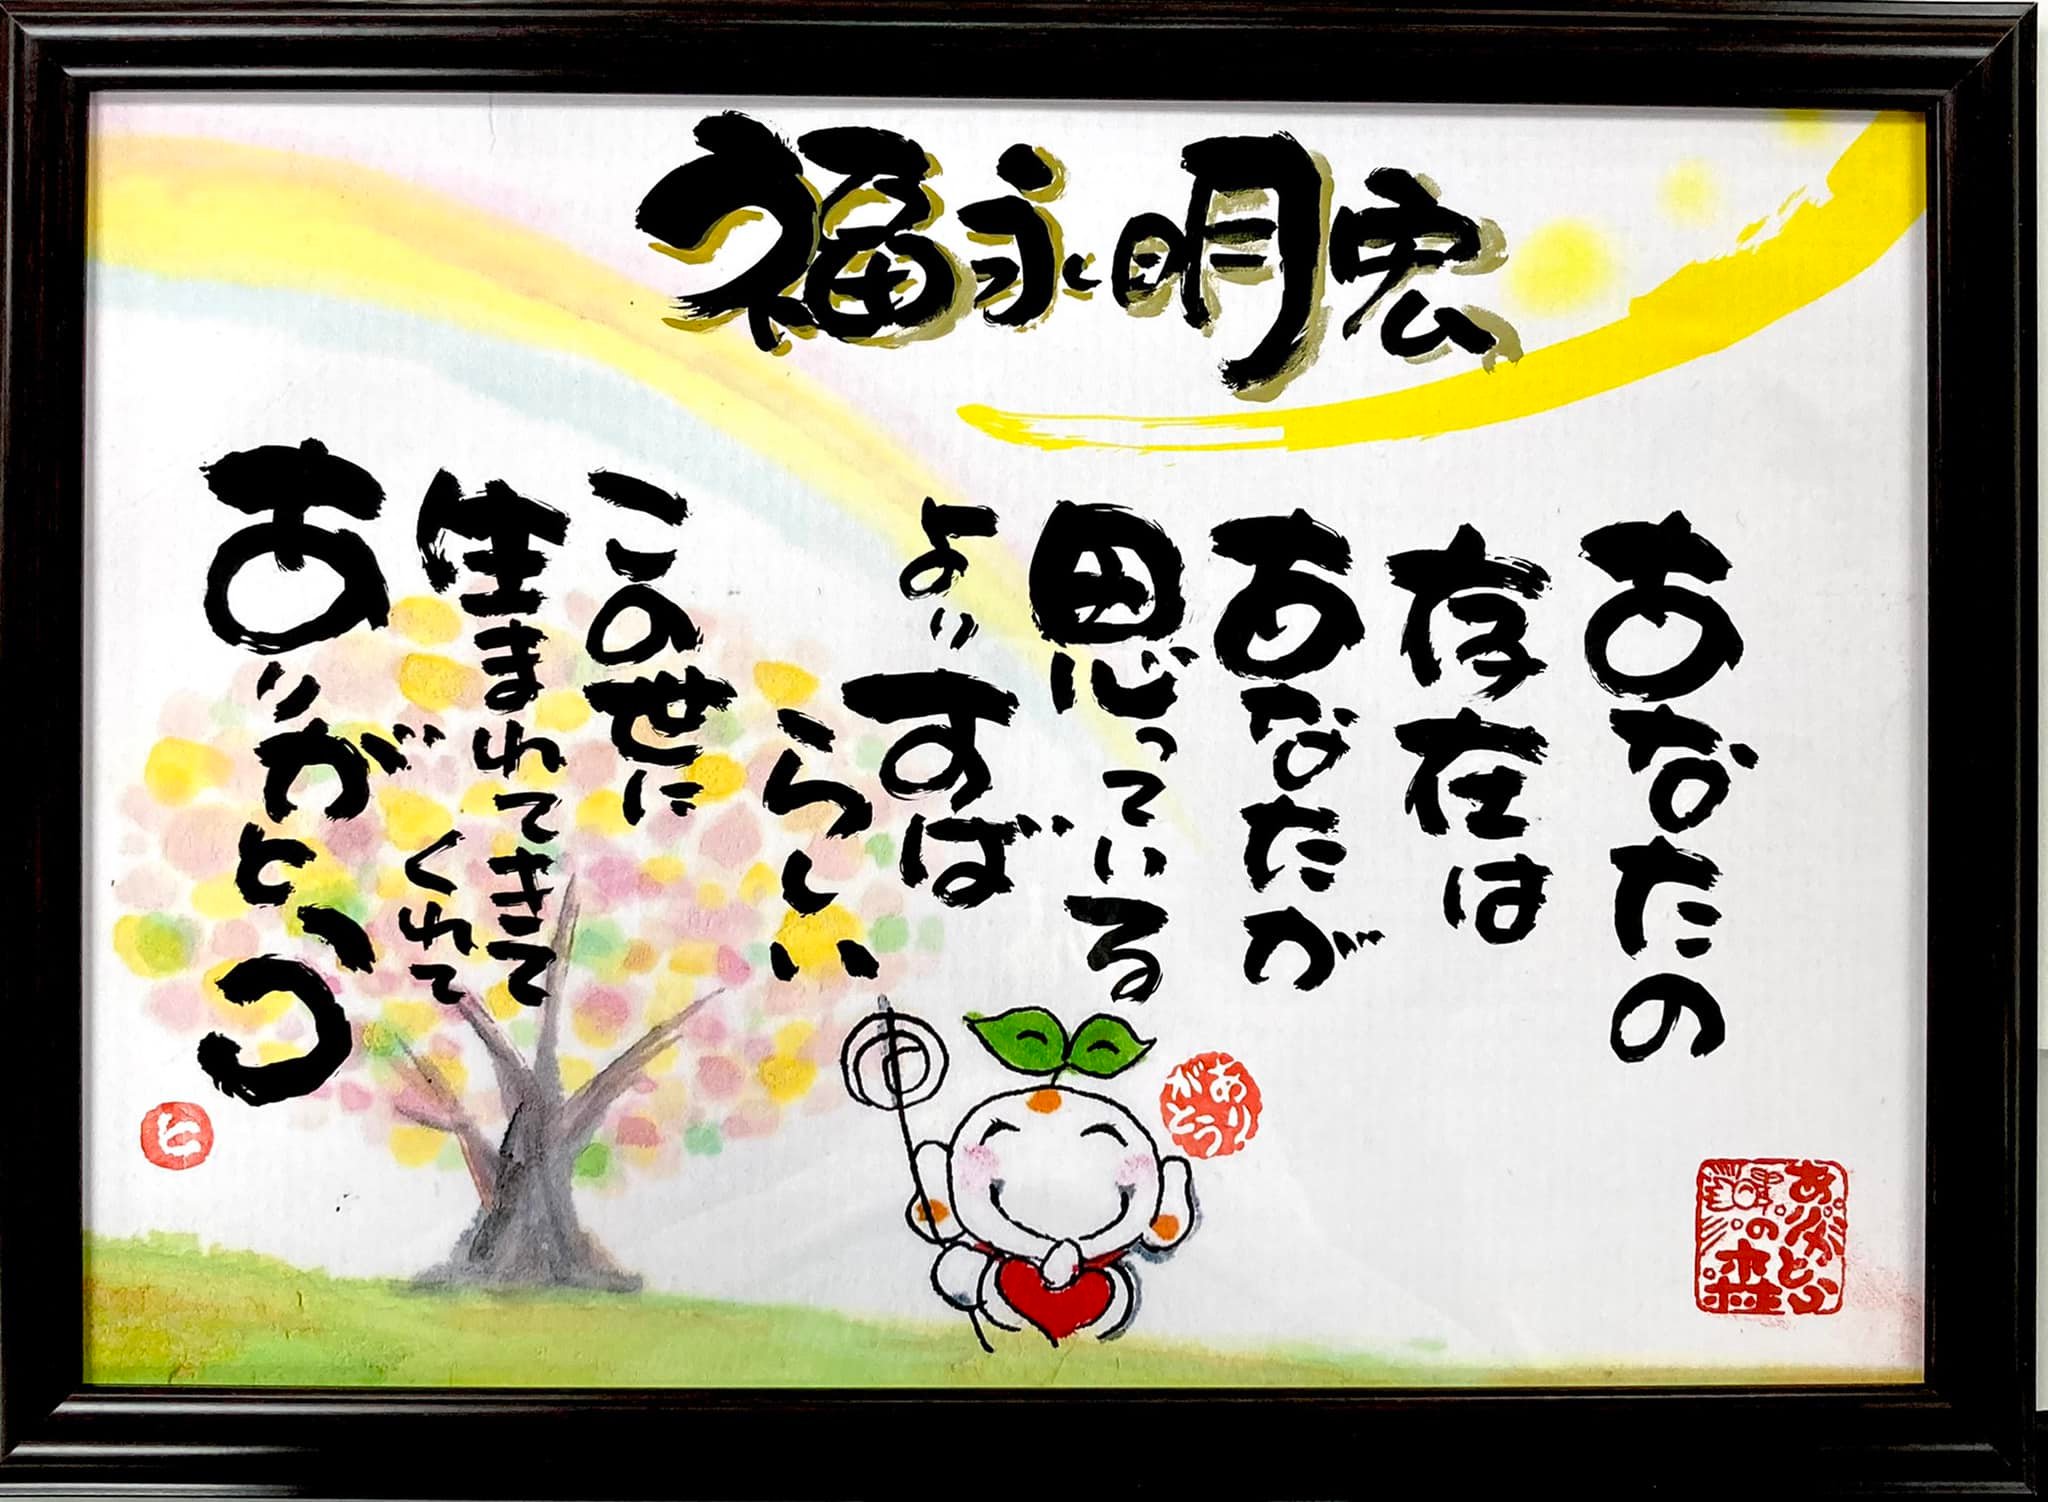 福永明宏
あなたの
存在は
あなたが
思っている
よりすば
らしい
この世に
生まれてきて
くれて
ありがとう
ヒ
ありがとう
ありがとう
の森